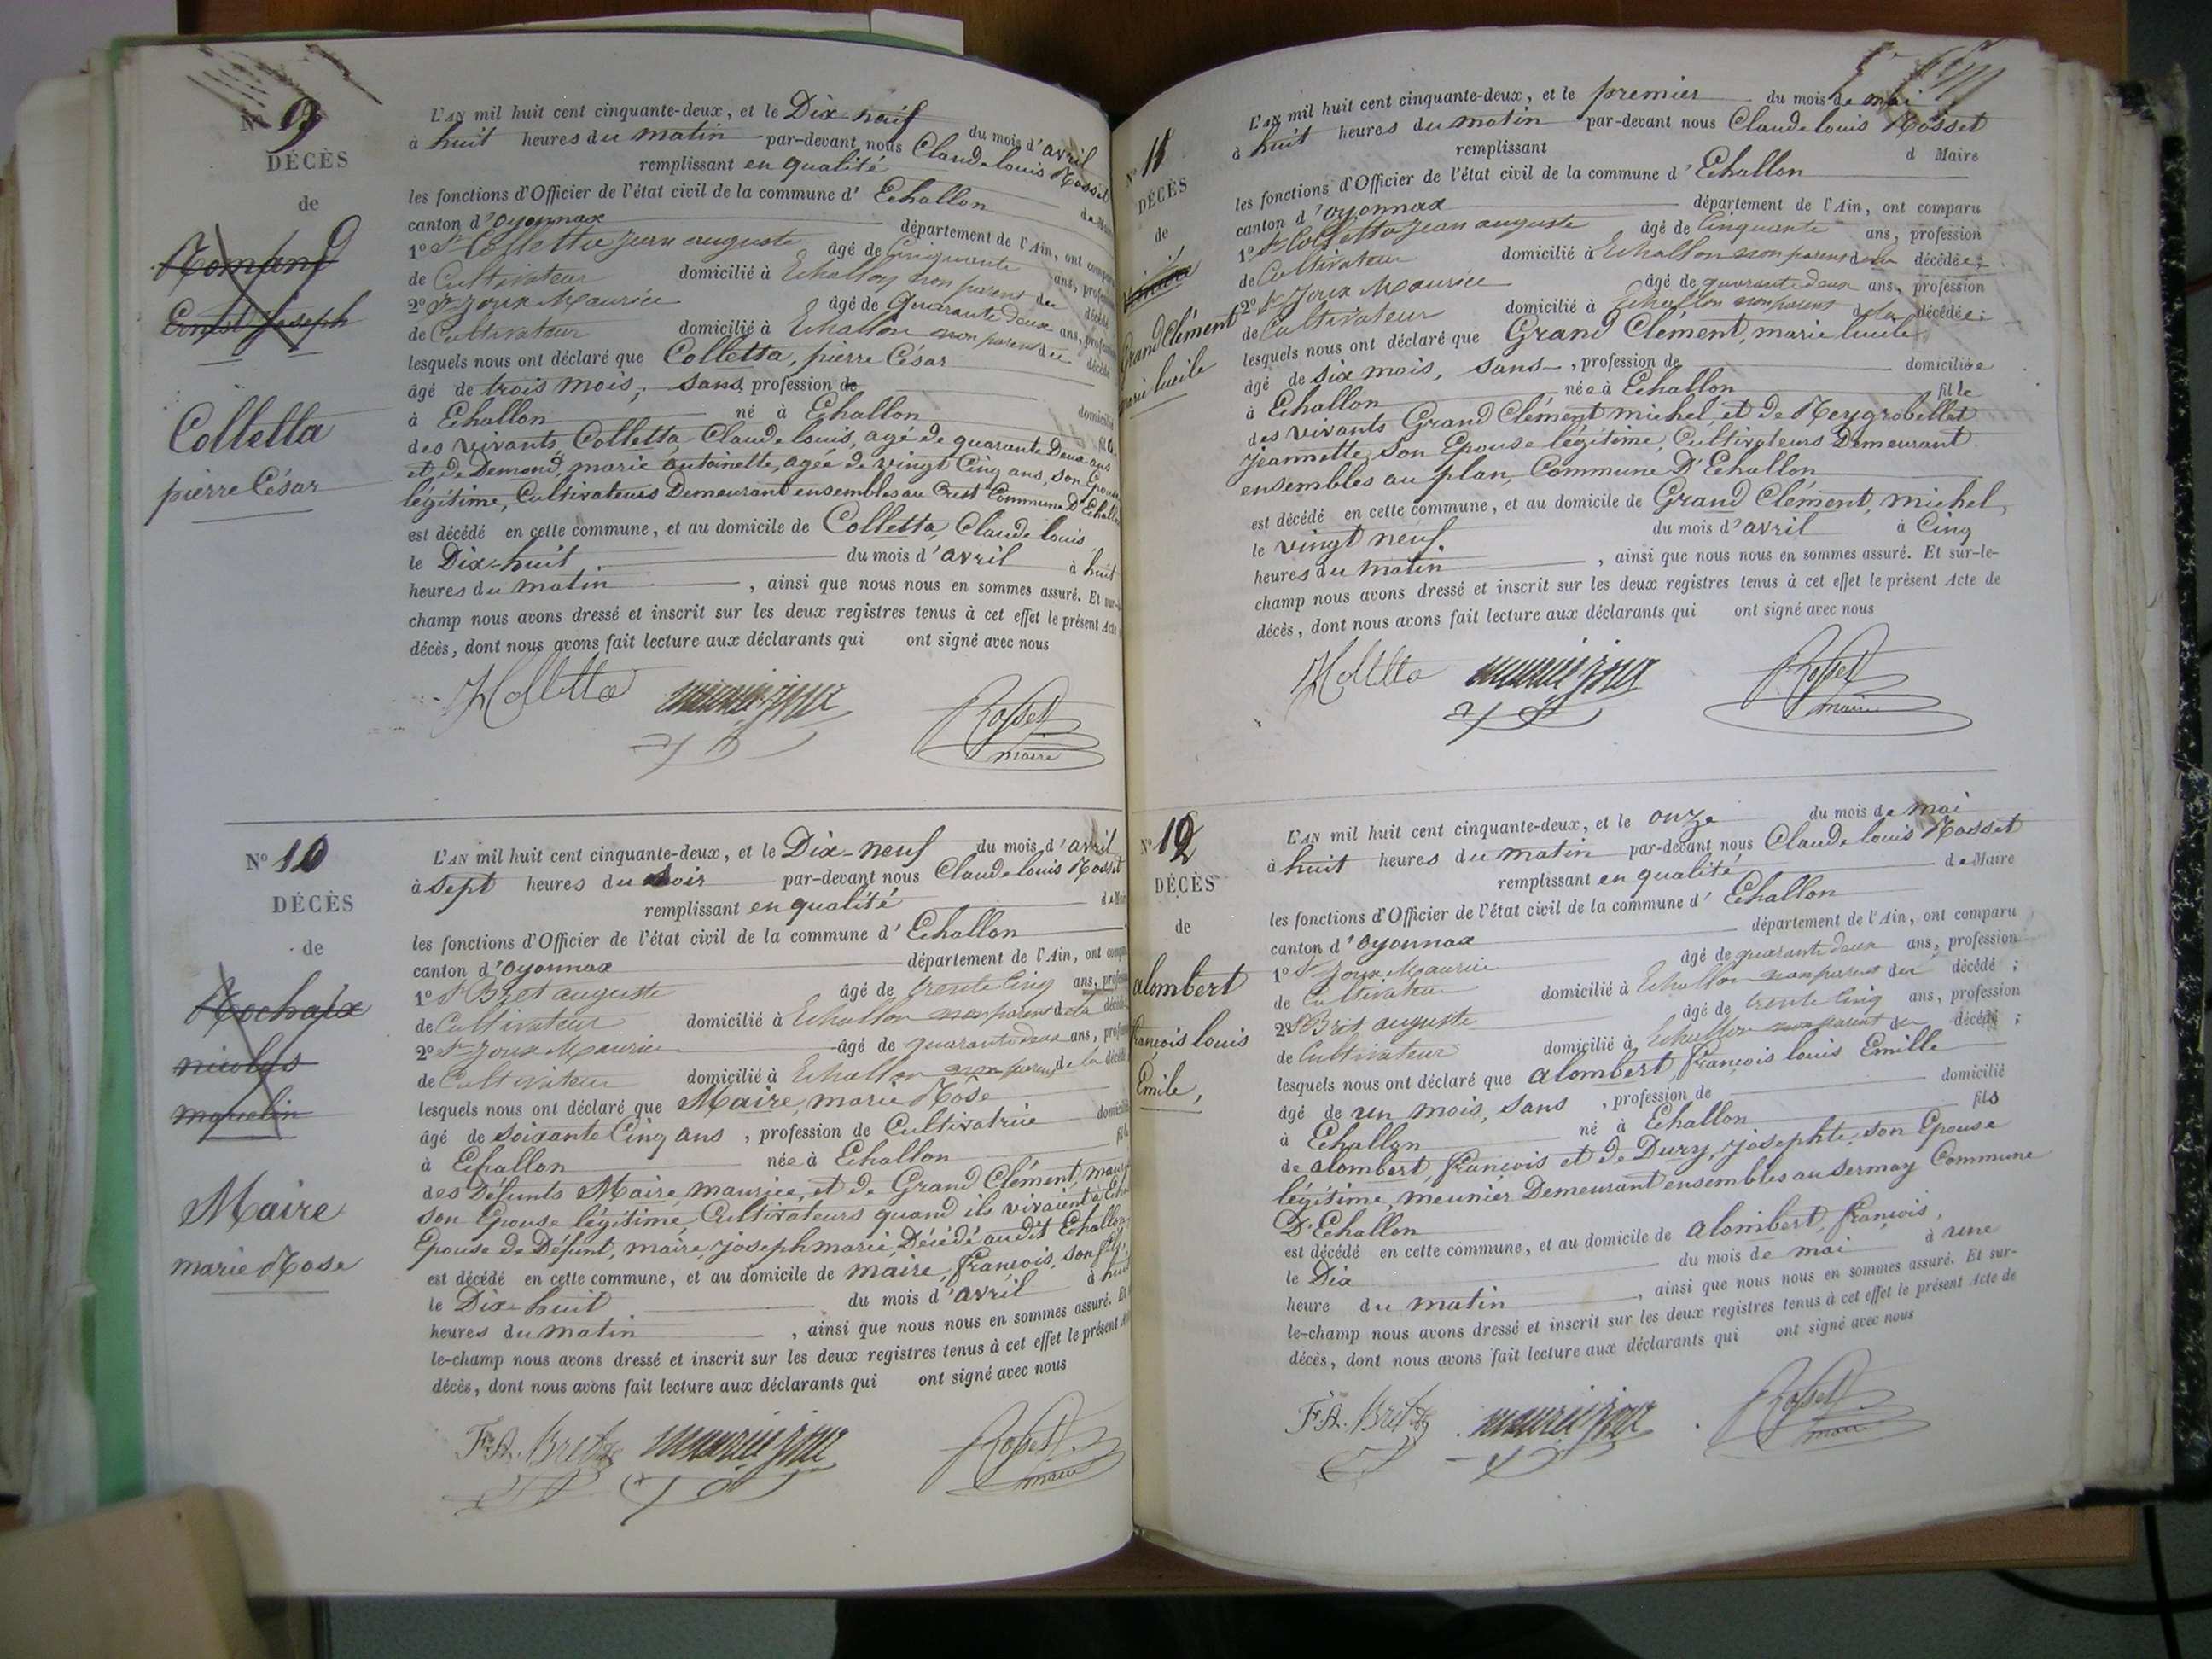 N° 9
DÉCÈS
de
Romand
Ernest Joseph
Colletta
pierre César
L'AN mil huit cent cinquante-deux, et le Dix-huit du mois d'avril
à huit heures du matin par-devant nous Claude louis Rosset
remplissant en qualité de Maire
les fonctions d'Officier de l'état civil de la commune d'Echallon
canton d'oyonnax département de l'Ain, ont comparu
1° Sr Colletta Jean auguste âgé de Cinquante ans, profession
de Cultivateur domicilié à Echallon non parent du décédé
2° Sr Joux Maurice âgé de Quarante deux ans, profession
de Cultivateur domicilié à Echallon non parent du décédé
lesquels nous ont déclaré que Colletta, pierre César
âgé de trois mois, sans profession de domicilié
à Echallon né à Echallon fils
des vivants Colletta, Claude louis, agé de quarante Deux ans
et de Demond, marie antoinette, agée de vingt Cinq ans, son Epouse
légitime, Cultivateurs Demeurant ensembles au Crest Commune D'Echallon
est décédé en cette commune, et au domicile de Colletta, Claude louis
le Dix-huit du mois d'avril à huit
heures du matin, ainsi que nous nous en sommes assuré. Et sur-le-
champ nous avons dressé et inscrit sur les deux registres tenus à cet effet le présent Acte
décès, dont nous avons fait lecture aux déclarants qui ont signé avec nous
Colletta maurice joux Rosset
maire
N° 10
DÉCÈS
de
Rochaix
nicolas
marcelin
Maire
marie Rose
L'AN mil huit cent cinquante-deux, et le Dix-neuf du mois d'avril
à sept heures du soir par-devant nous Claude louis Rosset
remplissant en qualité de Maire
les fonctions d'Officier de l'état civil de la commune d'Echallon
canton d'oyonnax département de l'Ain, ont comparu
1° Sr Bret auguste âgé de trente Cinq ans, profession
de Cultivateur domicilié à Echallon non parent de la décédée
2° Sr Joux Maurice âgé de quarante deux ans, profession
de Cultivateur domicilié à Echallon non parent de la décédée
lesquels nous ont déclaré que Maire, marie Rose
âgé de soixante Cinq ans, profession de Cultivatrice domiciliée
à Echallon née à Echallon fille
des Défunts Maire, maurice, et de Grand Clément,
son Epouse légitime, Cultivateurs quand ils vivaient à
Epouse de Défunt, maire, joseph marie, Décédé audit Echallon
est décédé en cette commune, et au domicile de maire, françois, son fils,
le Dix-huit du mois d'avril à huit
heures du matin, ainsi que nous nous en sommes assuré. Et
le-champ nous avons dressé et inscrit sur les deux registres tenus à cet effet le présent
décès, dont nous avons fait lecture aux déclarants qui ont signé avec nous
F.A. Bret maurice joux Rosset
maire
N° 11
DÉCÈS
de
Grand Clément
marie lucile
L'AN mil huit cent cinquante-deux, et le premier du mois de mai
à huit heures du matin par-devant nous Claude louis Rosset
remplissant d Maire
les fonctions d'Officier de l'état civil de la commune d'Echallon
canton d'oyonnax département de l'Ain, ont comparu
1° Sr Colletta Jean auguste âgé de Cinquante ans, profession
de Cultivateur domicilié à Echallon non parent de la décédée;
2° Sr Joux Maurice âgé de quarante deux ans, profession
de Cultivateur domicilié à Echallon non parent de la décédée;
lesquels nous ont déclaré que Grand Clément, marie lucile
âgé de six mois, sans, profession de domiciliée
à Echallon née à Echallon fille
des vivants Grand Clément michel, et de Reygrobellet
jeannette, son Epouse légitime, Cultivateurs Demeurant
ensembles au plan, Commune D'Echallon
est décédé en cette commune, et au domicile de Grand Clément, michel,
le vingt neuf du mois d'avril à Cinq
heures du matin, ainsi que nous nous en sommes assuré. Et sur-le-
champ nous avons dressé et inscrit sur les deux registres tenus à cet effet le présent Acte de
décès, dont nous avons fait lecture aux déclarants qui ont signé avec nous
Colletta maurice joux Rosset
maire
N° 12
DÉCÈS
de
alombert
françois louis
Émile,
L'AN mil huit cent cinquante-deux, et le onze du mois de mai
à huit heures du matin par-devant nous Claude louis Rosset
remplissant en qualité de Maire
les fonctions d'Officier de l'état civil de la commune d'Echallon
canton d'oyonnax département de l'Ain, ont comparu
1° Sr Joux Maurice âgé de quarante deux ans, profession
de Cultivateur domicilié à Echallon non parent du décédé;
2° Sr Bret auguste âgé de trente Cinq ans, profession
de Cultivateur domicilié à Echallon non parent du décédé;
lesquels nous ont déclaré que alombert, françois louis Emille
âgé de un mois, sans, profession de domicilié
à Echallon né à Echallon fils
de alombert, françois et de Dury, josephte, son Epouse
légitime, meunier Demeurant ensembles au sermay Commune
D'Echallon
est décédé en cette commune, et au domicile de alombert, françois,
le Dix du mois de mai à une
heure du matin, ainsi que nous nous en sommes assuré. Et sur-
le-champ nous avons dressé et inscrit sur les deux registres tenus à cet effet le présent Acte de
décès, dont nous avons fait lecture aux déclarants qui ont signé avec nous
F.A. Bret maurice joux Rosset
maire